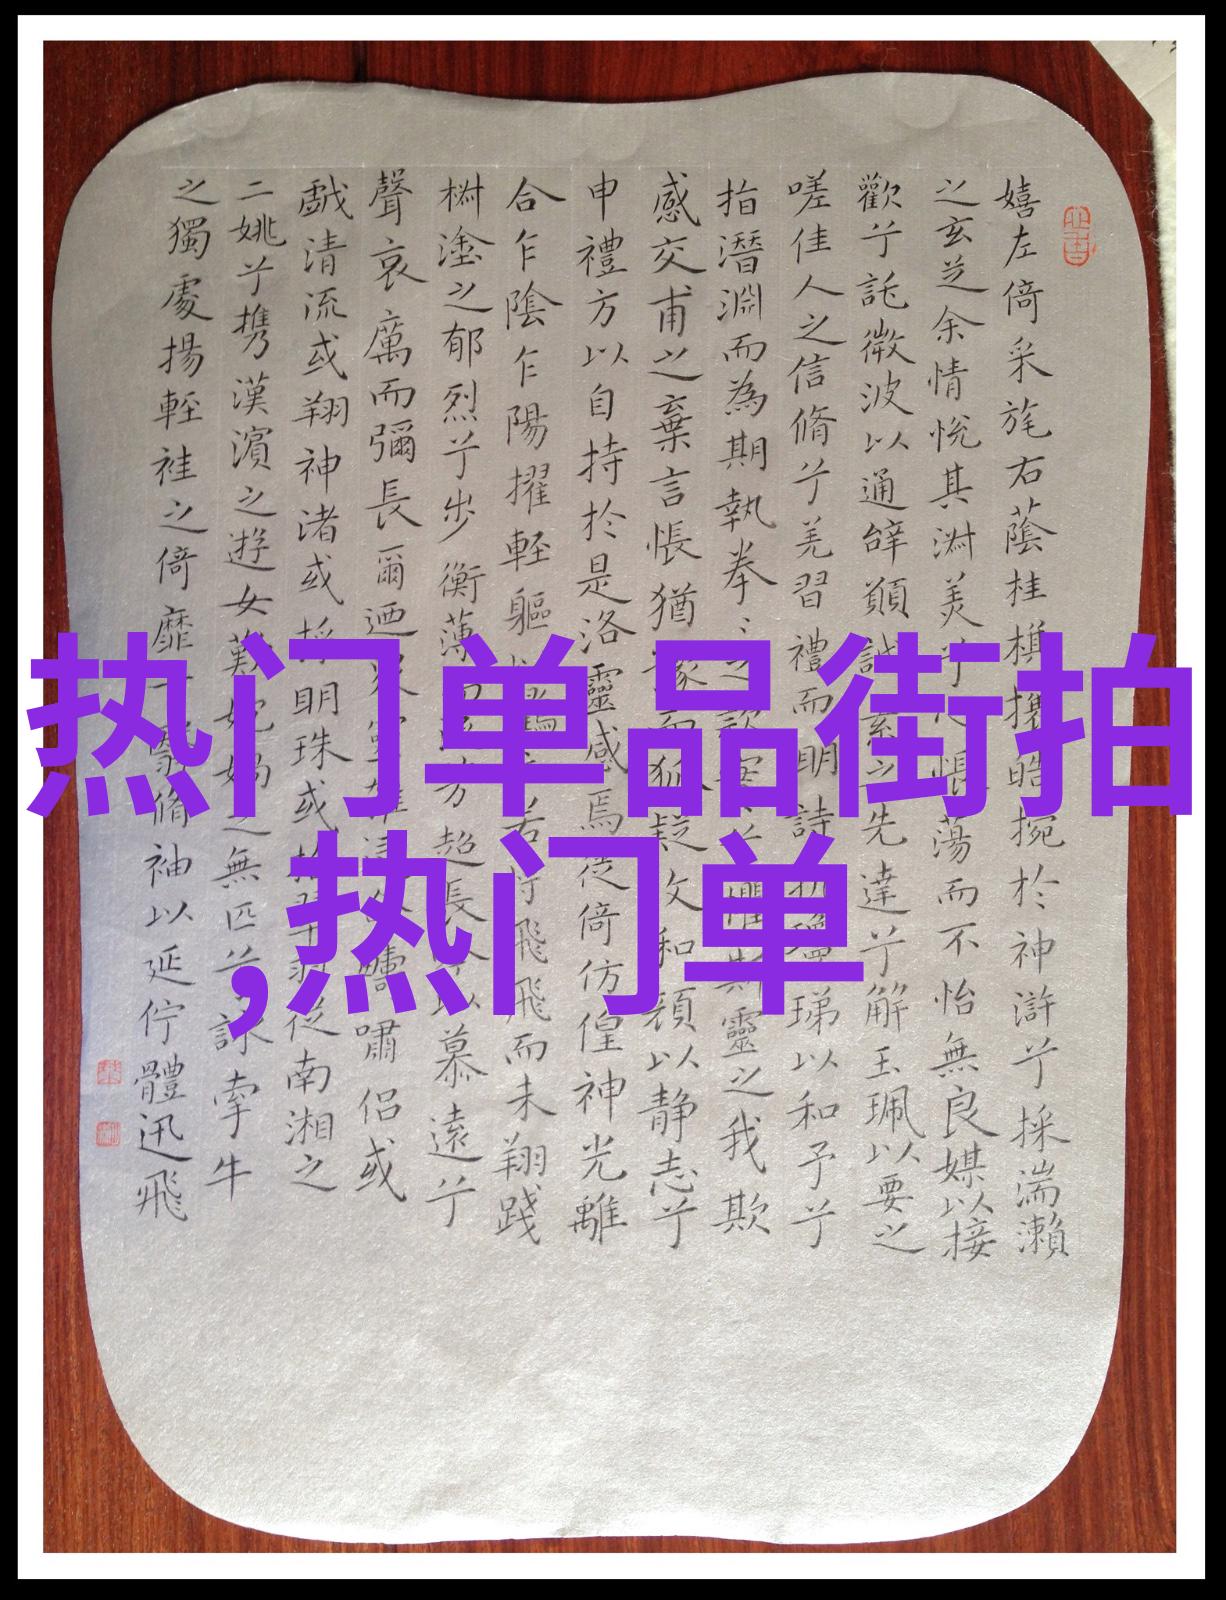 热门单品街拍
,热门单
嬉左倚采旄右蔭桂旗攘皓捥於神滸兮採湍瀨
之玄芝余情悅其淑美兮悵蕩而不怡無良媒以接
歡兮託微波以通辭願誠素之先達兮解玉珮以要之
嗟佳人之信脩兮羌習禮而明詩抗瓊珶以和予兮
指潛淵而為期執拳之款實兮懼斯靈之我欺
感交甫之棄言悵猶豫而狐疑收和顔以静志兮
申禮方以自持於是洛靈感焉徙倚仿偟神光離
合乍陰乍陽擢輕軀鶴立若将飛飛而未翔踐
椒塗之郁烈兮步衡薄而芳超長吟以慕遠兮
聲哀厲而彌長爾迺眾靈雜嘯侣或
戲清流或翔神渚或採明珠或拾翠羽從南湘之
二姚兮携漢濱之遊女歎媧之無匹兮詠牽牛
之獨處揚輕袿之倚靡翳脩袖以延佇體迅飛